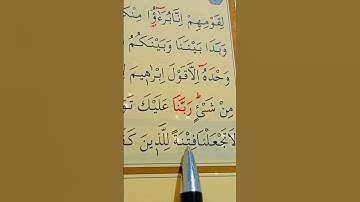 لِقَوْمِهِمْ اِنَّا بُرَءٰٓؤُا مِنْكُ
وَبَدَا بَيْنَنَا وَبَيْنَكُمُ
وَحْدَهُٓ اِلَّا قَوْلَ اِبْرٰه۪يمَ لِ
مِنْ شَیْءٍ رَبَّنَا عَلَيْكَ تَوَ
لَا تَجْعَلْنَا فِتْنَةً لِلَّذ۪ينَ كَفَ